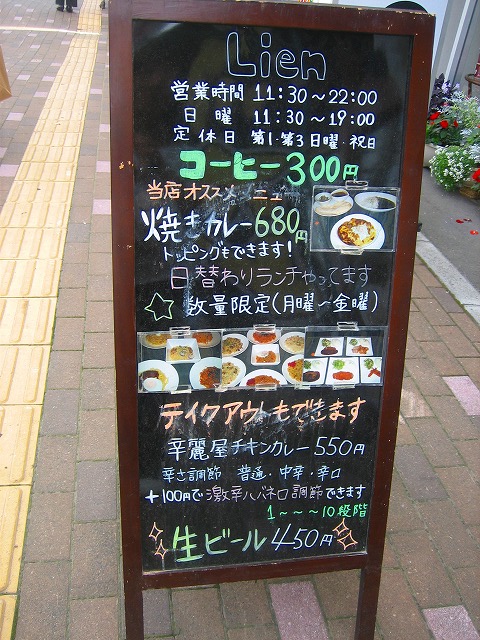 Lien
営業時間 11:30～22:00
日曜 11:30～19:00
定休日 第1・第3日曜・祝日
コーヒー300円
当店オススメメニュー
焼きカレー680円
トッピングもできます!
日替わりランチやってます
☆ 数量限定(月曜～金曜)
テイクアウトもできます
辛麗屋チキンカレー550円
辛さ調節 普通・中辛・辛口
+100円で激辛ハバネロ調節できます
1～～～10段階
生ビール450円